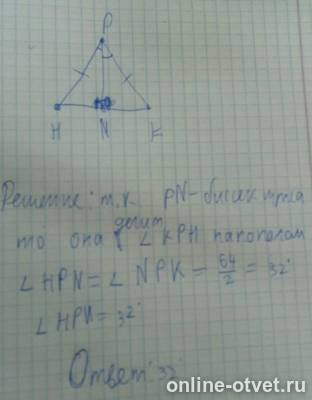 P
H N K
Решение: т.к. PN-биссектриса
то она делит ∠KPH пополам
∠HPN=∠NPK=64/2=32°
∠HPN=32°
Ответ: 32°
online-otvet.ru